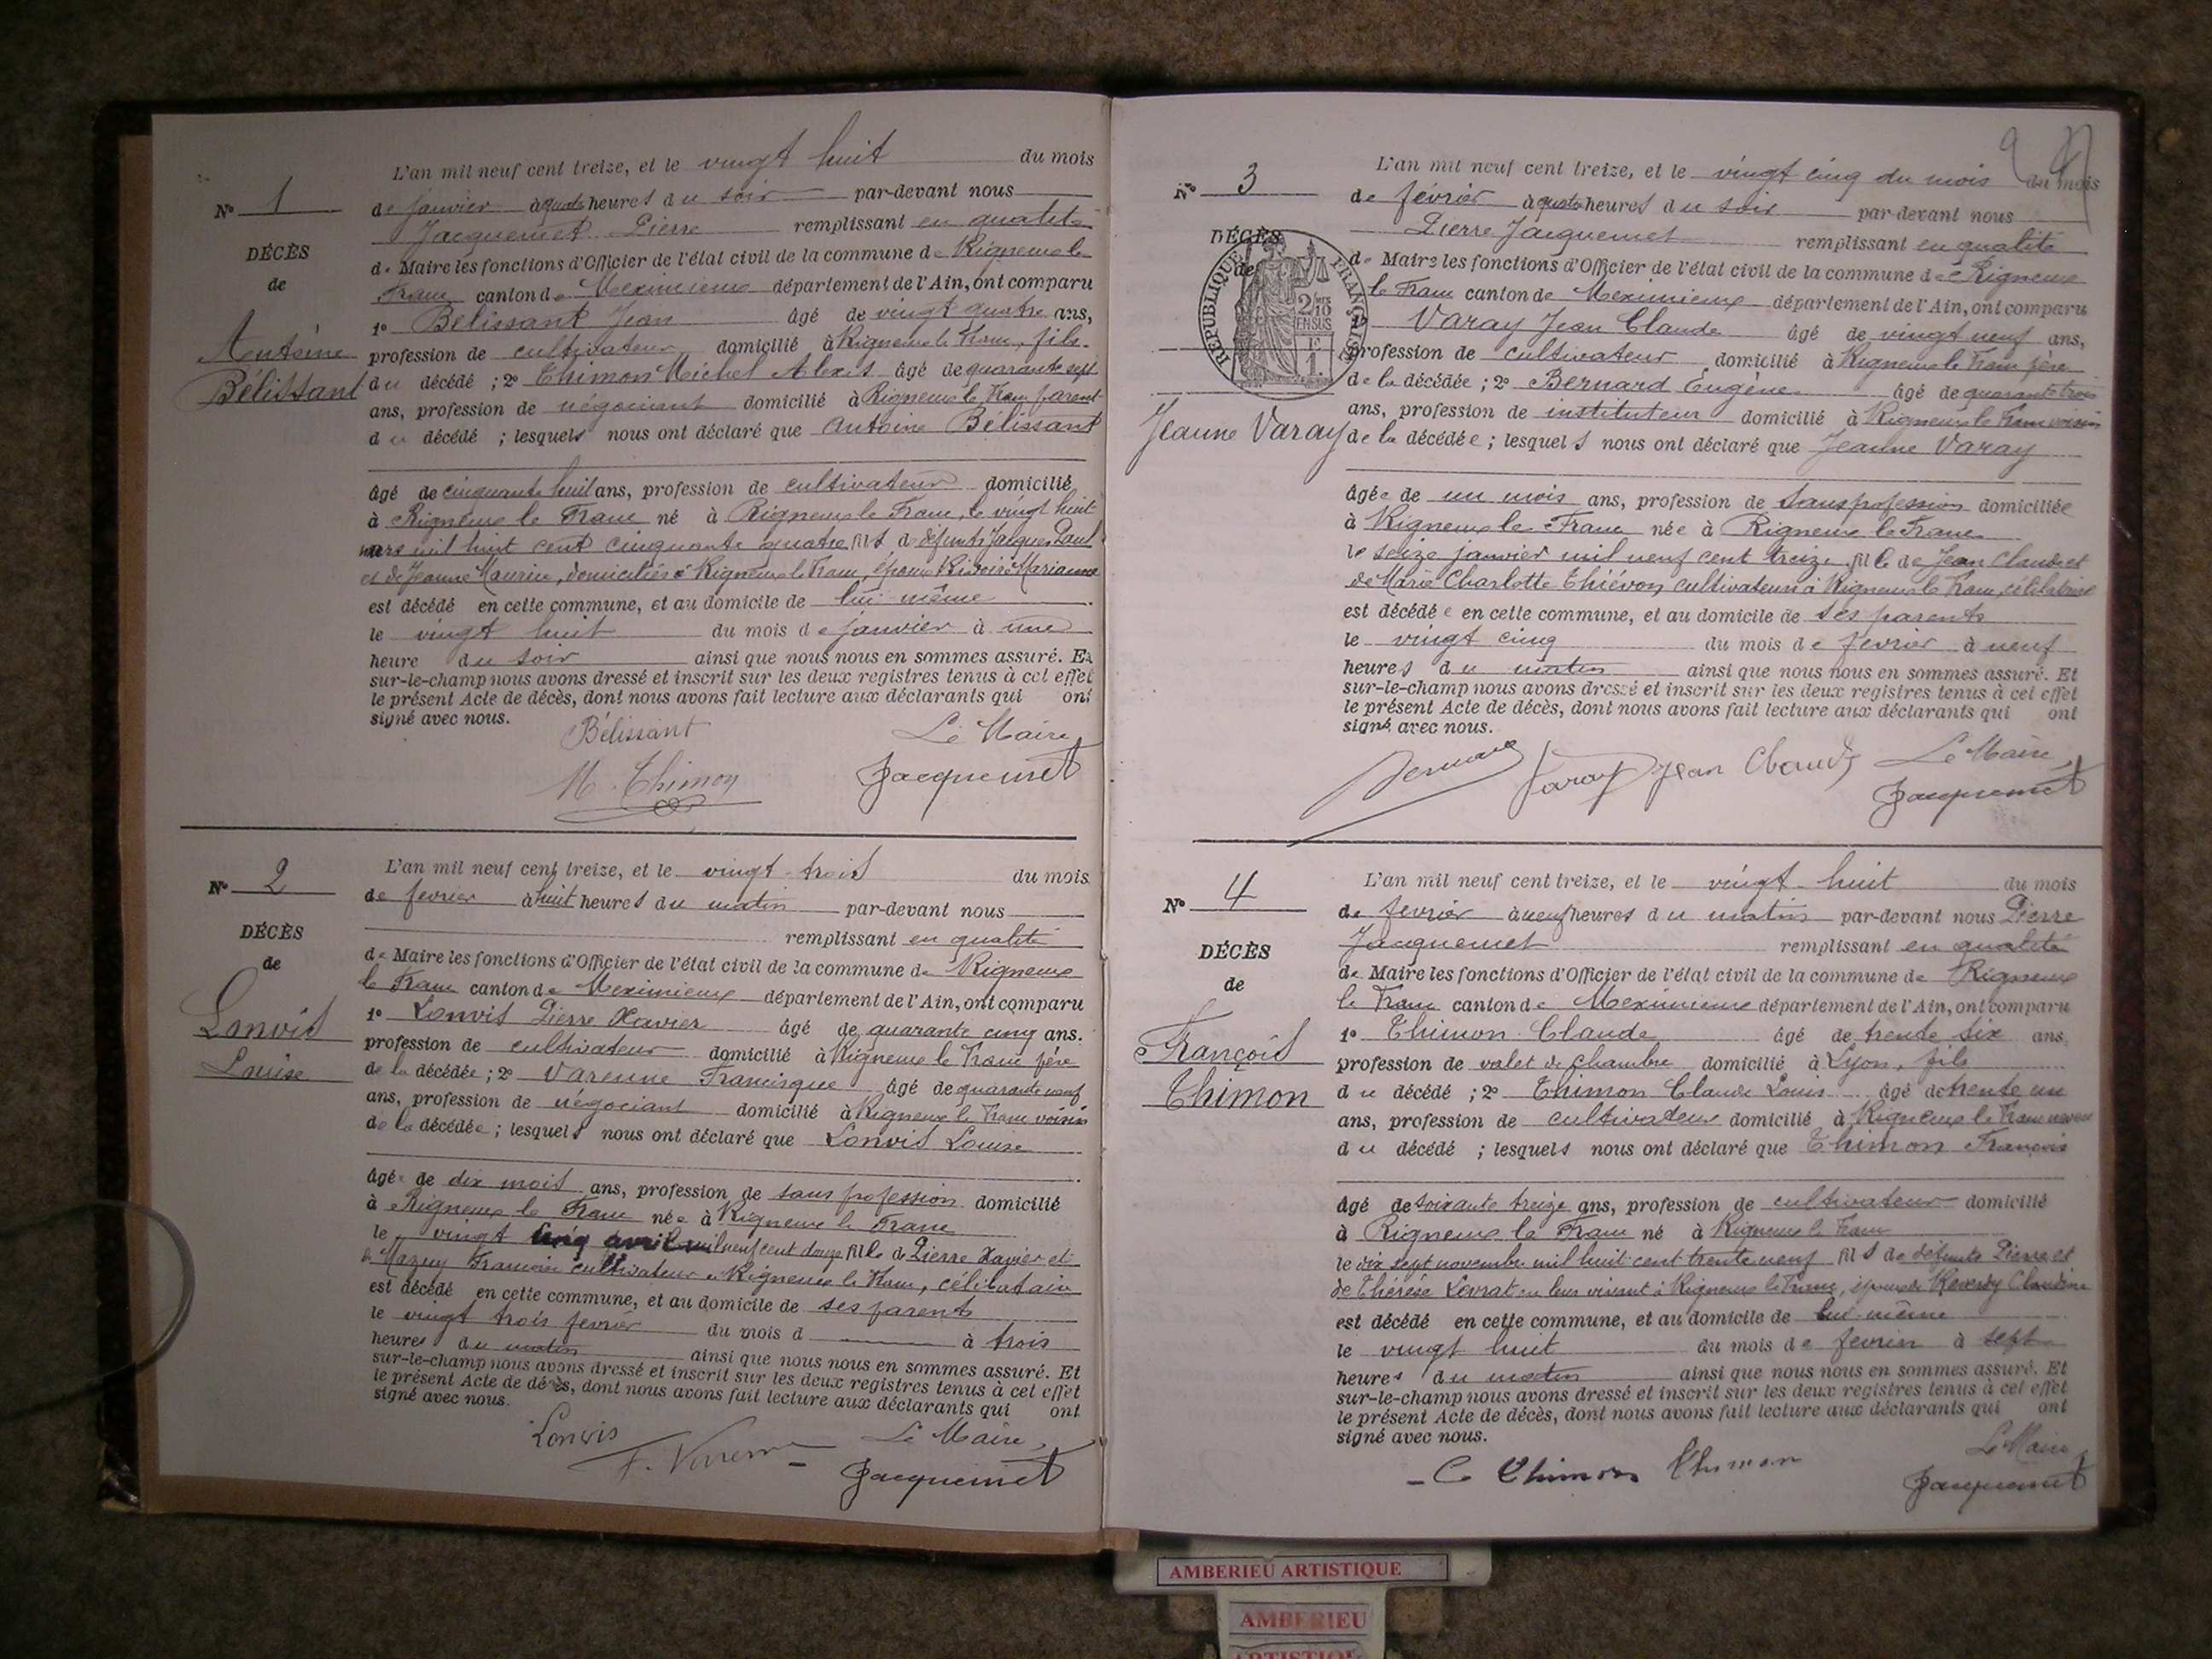 N° 1
DÉCÈS
de
Antoine
Bélissant
L'an mil neuf cent treize, et le vingt huit du mois
de janvier à quatre heures du soir par-devant nous
Jacquemet Pierre remplissant en qualité
de Maire les fonctions d'Officier de l'état civil de la commune de Rigneux le
Franc canton de Meximieux département de l'Ain, ont comparu
1° Bélissant Jean âgé de vingt quatre ans,
profession de cultivateur domicilié à Rigneux le Franc, fils
du décédé ; 2° Thimon Michel Alexis âgé de quarante sept
ans, profession de négociant domicilié à Rigneux le Franc parent
du décédé ; lesquels nous ont déclaré que Antoine Bélissant
âgé de cinquante huit ans, profession de cultivateur domicilié
à Rigneux le Franc né à Rigneux le Franc, le vingt huit
mars mil huit cent cinquante quatre fils de défunts Jacques Paul
et de Jeanne Maurice, domiciliés à Rigneux le Franc, époux Marianne
est décédé en cette commune, et au domicile de lui même
le vingt huit du mois de janvier à une
heure du soir ainsi que nous nous en sommes assuré. Et
sur-le-champ nous avons dressé et inscrit sur les deux registres tenus à cet effet
le présent Acte de décès, dont nous avons fait lecture aux déclarants qui ont
signé avec nous.
Bélissant Le Maire
M. Thimon Jacquemet
N° 2
DÉCÈS
de
Lonvis
Louise
L'an mil neuf cent treize, et le vingt-trois du mois
de fevrier à huit heures du matin par-devant nous
remplissant en qualité
de Maire les fonctions d'Officier de l'état civil de la commune de Rigneux
le Franc canton de Meximieux département de l'Ain, ont comparu
1° Lonvis Pierre Xavier âgé de quarante cinq ans.
profession de cultivateur domicilié à Rigneux le Franc père
de la décédée ; 2° Varenne Francisque âgé de quarante neuf
ans, profession de négociant domicilié à Rigneux le Franc voisin
de la décédée ; lesquels nous ont déclaré que Lonvis Louise
âgée de dix mois ans, profession de sans profession domicilié
à Rigneux le Franc née à Rigneux le Franc
le vingt cinq avril mil neuf cent douze fille de Pierre Xavier et
cultivateur à Rigneux le Franc, célibataire
est décédé en cette commune, et au domicile de ses parents
le vingt trois fevrier du mois d à trois
heures du matin ainsi que nous nous en sommes assuré. Et
sur-le-champ nous avons dressé et inscrit sur les deux registres tenus à cet effet
le présent Acte de décès, dont nous avons fait lecture aux déclarants qui ont
signé avec nous.
Lonvis Le Maire
F. Varenne Jacquemet
N° 3
DÉCÈS
de
RÉPUBLIQUE FRANÇAISE
2/10
EN SUS
1 F
Jeanne Varay
L'an mil neuf cent treize, et le vingt cinq du mois du mois
de février à quatre heures du soir par-devant nous
Pierre Jacquemet remplissant en qualité
de Maire les fonctions d'Officier de l'état civil de la commune de Rigneux
le Franc canton de Meximieux département de l'Ain, ont comparu
1° Varay Jean Claude âgé de vingt neuf ans,
profession de cultivateur domicilié à Rigneux le Franc père
de la décédée ; 2° Bernard Eugène âgé de quarante trois
ans, profession de instituteur domicilié à Rigneux le Franc voisin
de la décédée ; lesquels nous ont déclaré que Jeanne Varay
âgée de un mois ans, profession de Sans profession domiciliée
à Rigneux le Franc née à Rigneux le Franc
le seize janvier mil neuf cent treize fille de Jean Claude et
de Marie Charlotte Thiévon cultivateurs à Rigneux le Franc, célibataire
est décédée en cette commune, et au domicile de ses parents
le vingt cinq du mois de fevrier à neuf
heures du matin ainsi que nous nous en sommes assuré. Et
sur-le-champ nous avons dressé et inscrit sur les deux registres tenus à cet effet
le présent Acte de décès, dont nous avons fait lecture aux déclarants qui ont
signé avec nous.
Bernard Varay Jean Claude Le Maire
Jacquemet
N° 4
DÉCÈS
de
François
Thimon
L'an mil neuf cent treize, et le vingt-huit du mois
de fevrier à neuf heures du matin par-devant nous Pierre
Jacquemet remplissant en qualité
de Maire les fonctions d'Officier de l'état civil de la commune de Rigneux
le Franc canton de Meximieux département de l'Ain, ont comparu
1° Thimon Claude âgé de trente six ans
profession de valet de chambre domicilié à Lyon, fils
du décédé ; 2° Thimon Claude Louis âgé de trente un
ans, profession de cultivateur domicilié à Rigneux le Franc neveu
du décédé ; lesquels nous ont déclaré que Thimon François
âgé de soixante treize ans, profession de cultivateur domicilié
à Rigneux le Franc né à Rigneux le Franc
le dix sept novembre mil huit cent trente neuf fils de défunts Pierre et
de Thérèse Levrat en leur vivant à Rigneux le Franc, époux de Claudine
est décédé en cette commune, et au domicile de lui-même
le vingt huit du mois de fevrier à sept
heures du matin ainsi que nous nous en sommes assuré. Et
sur-le-champ nous avons dressé et inscrit sur les deux registres tenus à cet effet
le présent Acte de décès, dont nous avons fait lecture aux déclarants qui ont
signé avec nous.
Le Maire
C Thimon Thimon Jacquemet
AMBERIEU ARTISTIQUE
AMBERIEU
ARTISTIQUE